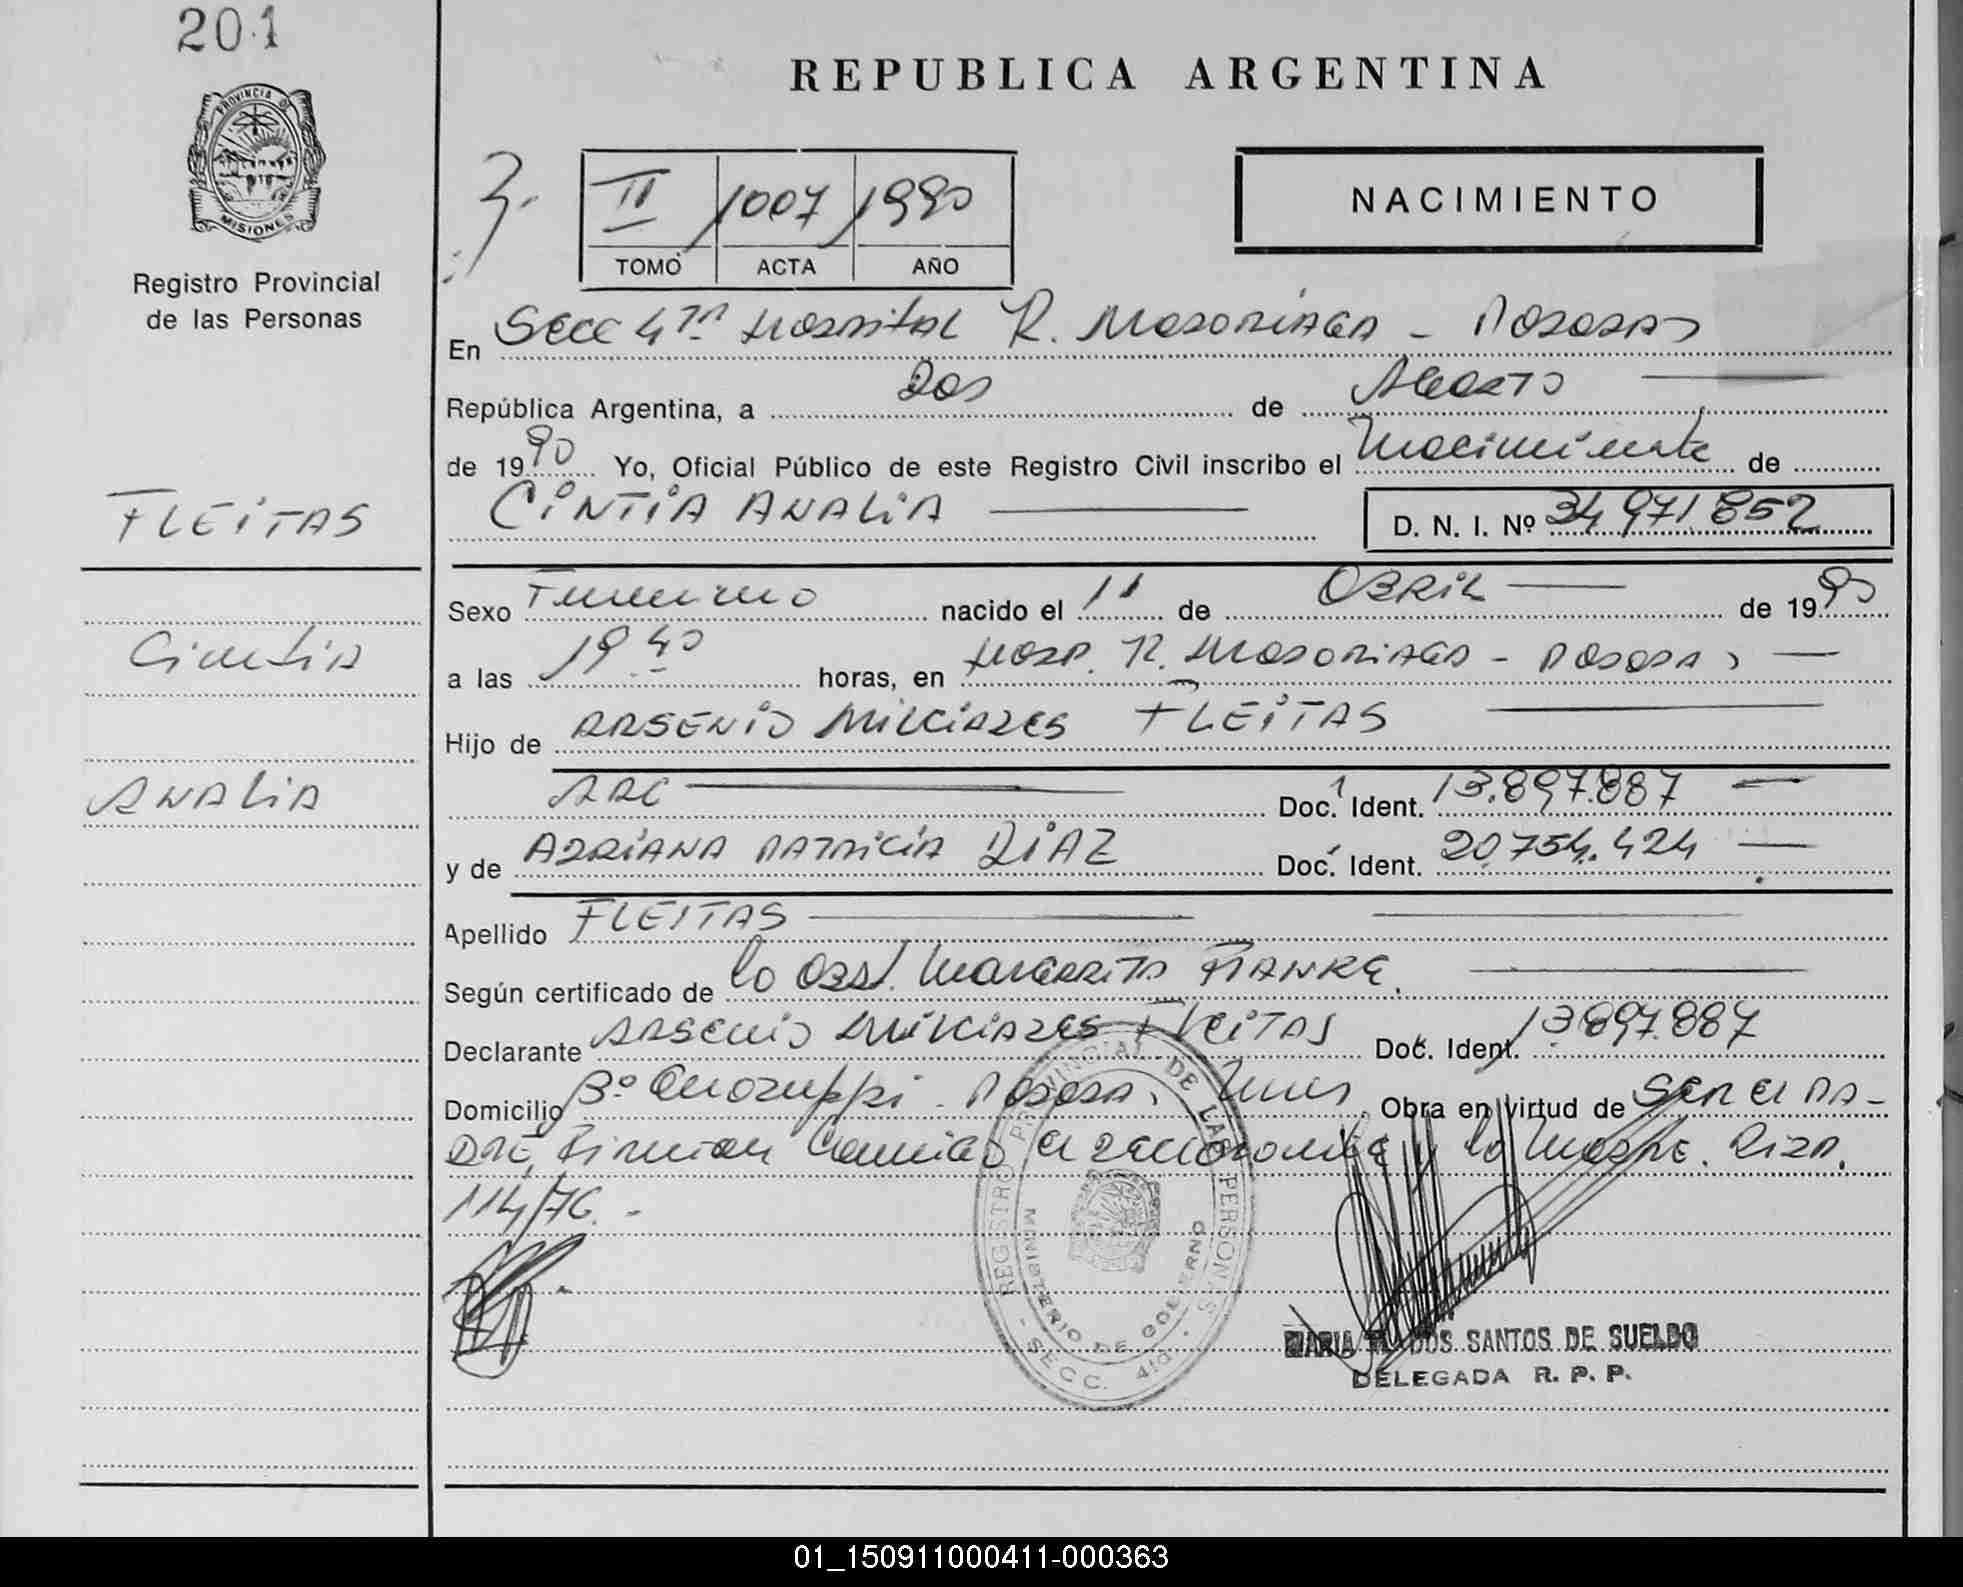 201
PROVINCIA DE
MISIONES
Registro Provincial
de las Personas
REPUBLICA ARGENTINA
II 1007 1990
TOMO ACTA AÑO
NACIMIENTO
En Secc 4ta Hospital R. Madariaga - Posadas
República Argentina, a Dos de Agosto
de 1990 Yo, Oficial Público de este Registro Civil inscribo el Nacimiento de
CINTIA ANALIA D. N. I. Nº 34 971 852
FLEITAS
Cintia
ANALIA
Sexo Femenino nacido el 11 de ABRIL de 1990
a las 19 40 horas, en Hosp. R. Madariaga - Posadas
Hijo de ARSENIO MILCIADES FLEITAS
ARG Doc. Ident. 13.897.887
y de ADRIANA PATRICIA DIAZ Doc. Ident. 20.754.424
Apellido FLEITAS
Según certificado de la Obst. Margarita
Declarante ARSENIO MILCIADES FLEITAS Doc. Ident. 13.897.887
Domicilio Bº Posadas, Mnes, Obra en virtud de SER el PA-
DRE, Firman el y la MADRE. DISP.
114/76.-
REGISTRO PROVINCIAL DE LAS PERSONAS
MINISTERIO DE GOBIERNO
- SECC. 4ta. -
MARIA DOS SANTOS DE SUELDO
DELEGADA R. P. P.
01_150911000411-000363